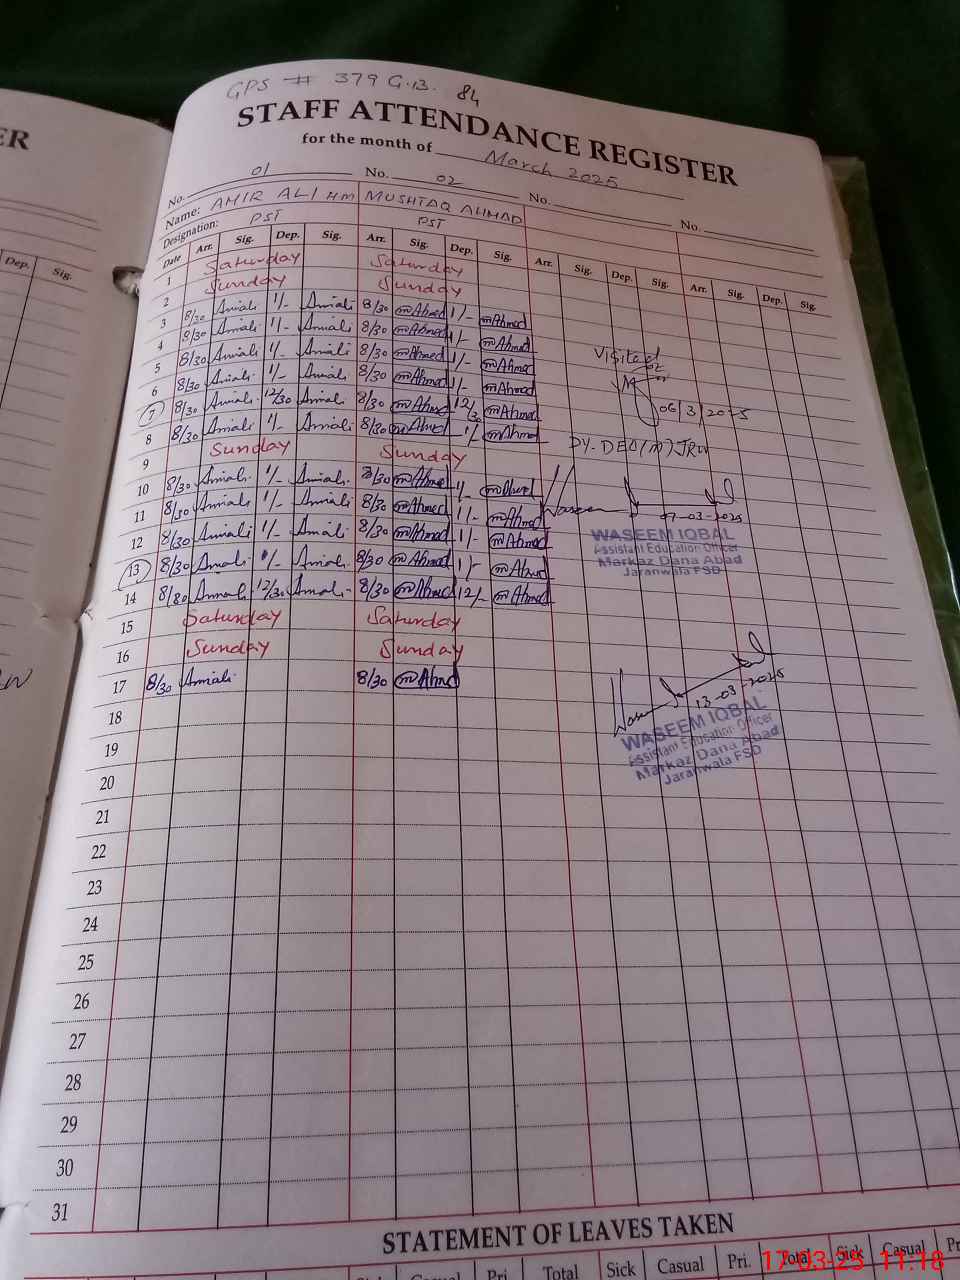 ER
GPS # 379 G.B. 84
STAFF ATTENDANCE REGISTER
for the month of March 2025
No. 01 No. 02 No. No.
Name: AMIR ALI HM MUSHTAQ AHMAD
Designation: PST PST
Dep. Sig.
Date Arr. Sig. Dep. Sig. Arr. Sig. Dep. Sig. Arr. Sig. Dep. Sig. Arr. Sig. Dep. Sig.
1 Saturday Saturday
2 Sunday Sunday
3 8/30 Amiali 1/- Amiali 8/30 mAhmed 1/- mAhmed
4 8/30 Amiali 1/- Amiali 8/30 mAhmed 1/- mAhmed
5 8/30 Amiali 1/- Amiali 8/30 mAhmed 1/- mAhmed
6 8/30 Amiali 1/- Amiali 8/30 mAhmed 1/- mAhmed
7 8/30 Amiali 12/30 Amiali 8/30 mAhmed 12/30 mAhmed
8 8/30 Amiali 1/- Amiali 8/30 mAhmed 1/- mAhmed
9 Sunday Sunday
10 8/30 Amiali 1/- Amiali 8/30 mAhmed 1/- mAhmed
11 8/30 Amiali 1/- Amiali 8/30 mAhmed 1/- mAhmed
12 8/30 Amiali 1/- Amiali 8/30 mAhmed 1/- mAhmed
13 8/30 Amiali 1/- Amiali 8/30 mAhmed 1/- mAhmed
14 8/30 Amiali 12/30 Amiali 8/30 mAhmed 12/- mAhmed
15 Saturday Saturday
16 Sunday Sunday
17 8/30 Amiali 8/30 mAhmed
18
19
20
21
22
23
24
25
26
27
28
29
30
31
Visited
06/3/2025
DY-DEO(M)JRW
Waseem
07-03-2025
WASEEM IQBAL
Assistant Education Officer
Markaz Dana Abad
Jaranwala FSD
13-03-2025
WASEEM IQBAL
Assistant Education Officer
Markaz Dana Abad
Jaranwala FSD
STATEMENT OF LEAVES TAKEN
Sick Casual Pri. Total Sick Casual Pri. Total Sick Casual Pr
17-03-25 11:18